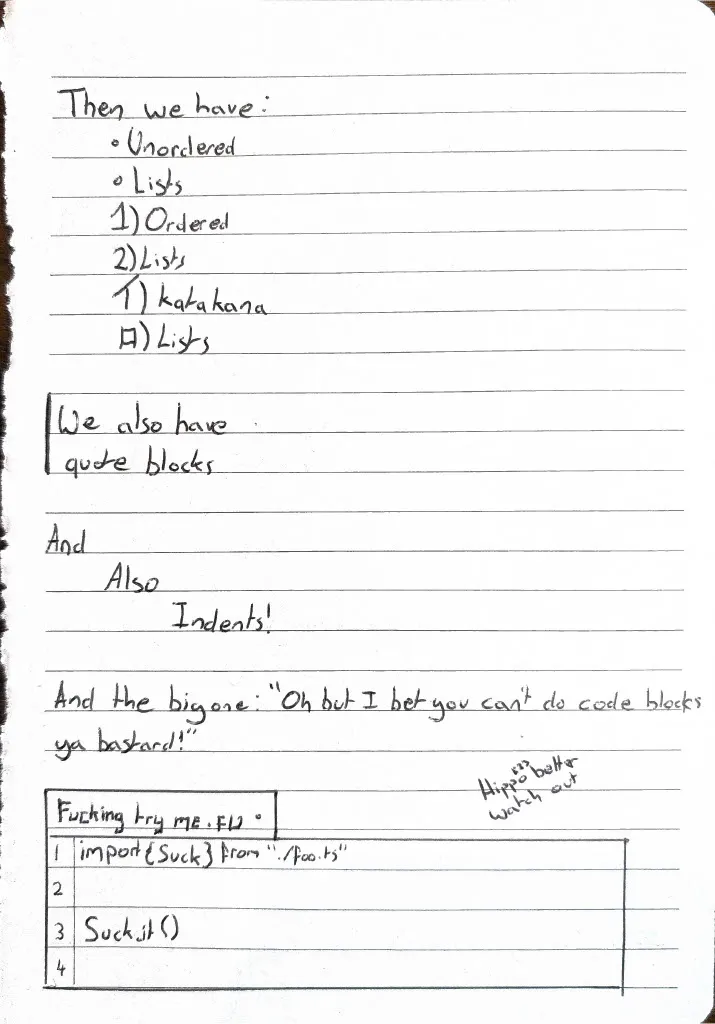 Then we have:
• Unordered
• Lists
1) Ordered
2) Lists
イ) katakana
ロ) Lists
We also have
quote blocks
And
Also
Indents!
And the big one: "Oh but I bet you can't do code blocks
ya bastard!"
Hippo better
watch out
Fucking try me.
1 import {Suck} from "./foo.ts"
2
3 Suck.it()
4